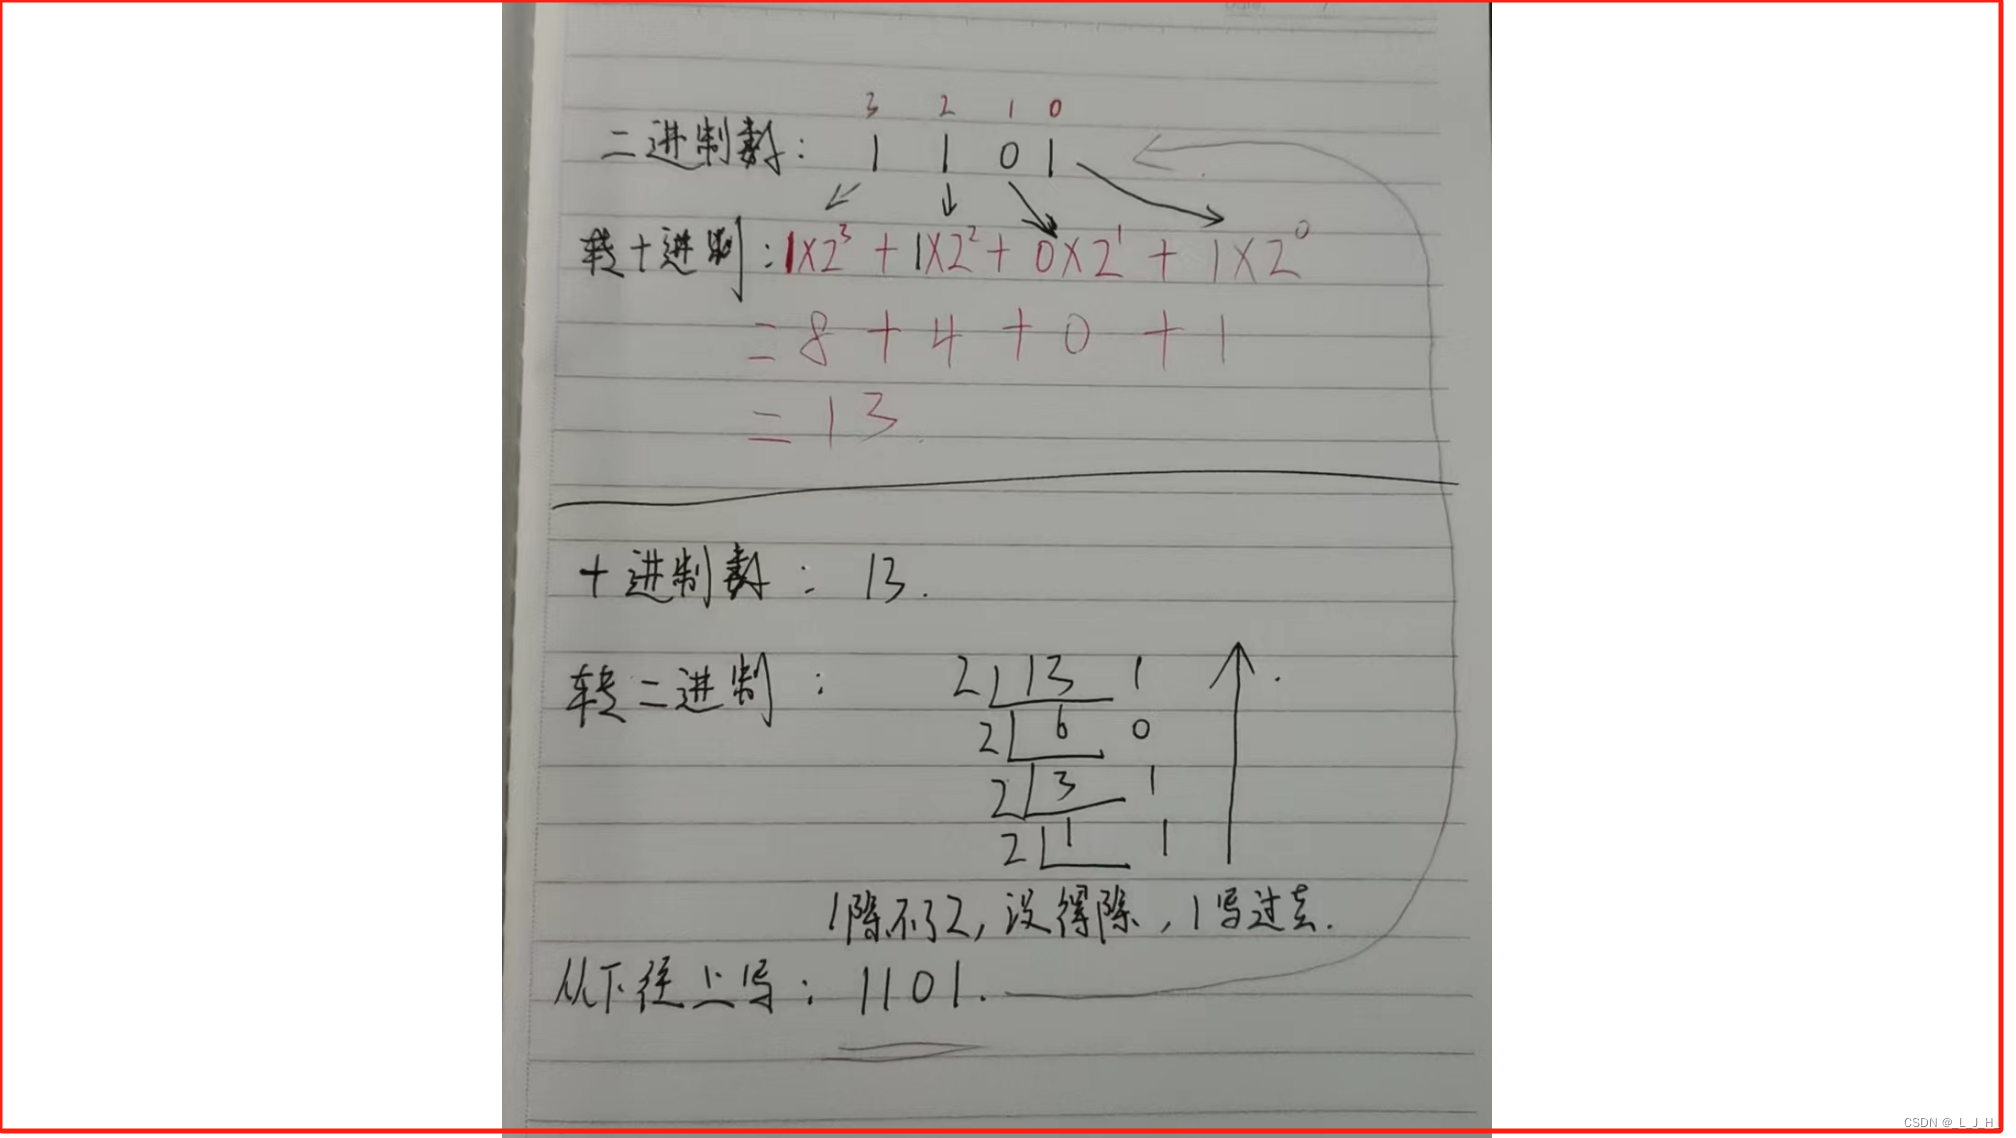 3 2 1 0
二进制数: 1 1 0 1
转十进制: 1×2³ + 1×2² + 0×2¹ + 1×2⁰
= 8 + 4 + 0 + 1
= 13
十进制数: 13.
转二进制: 2 13 1
2 6 0
2 3 1
2 1 1
1除不了2, 没得除, 1写过去.
从下往上写: 1101.
CSDN @_L_J_H_